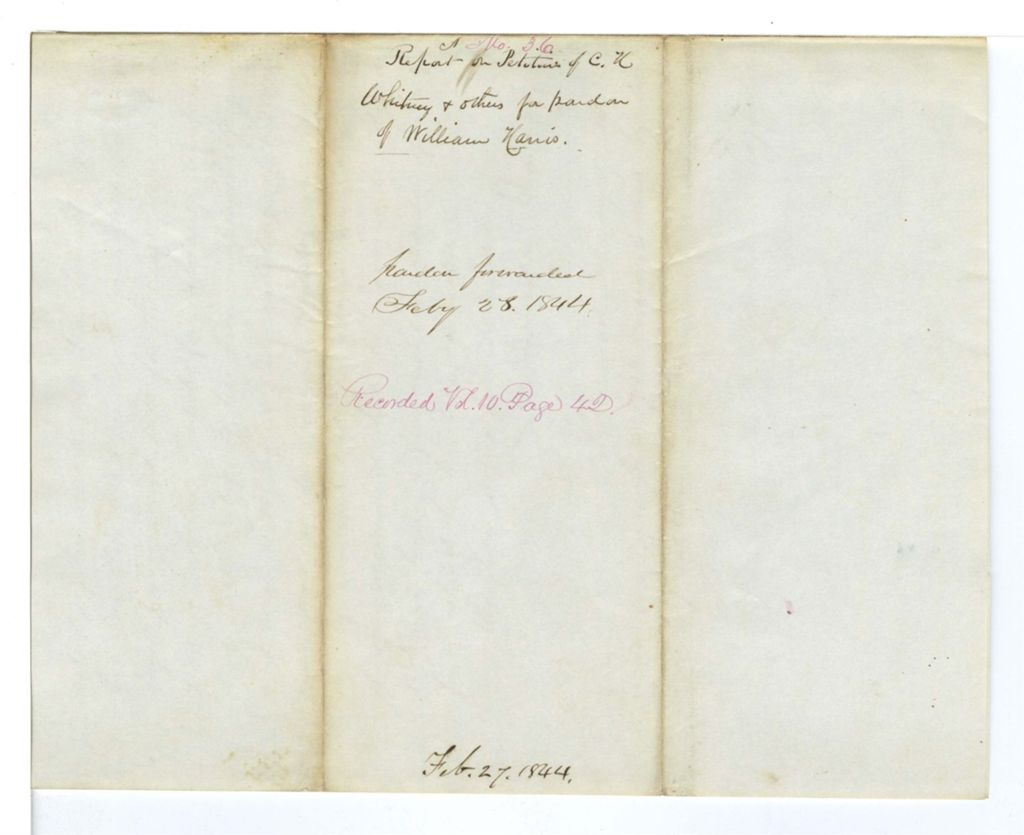 A No. 36.
Report on Petition of C. H
Whitney & others for pardon
of William Harris.
pardon forwarded
Feby 28. 1844.
Recorded Vol. 10. Page 42.
Feb. 27. 1844.